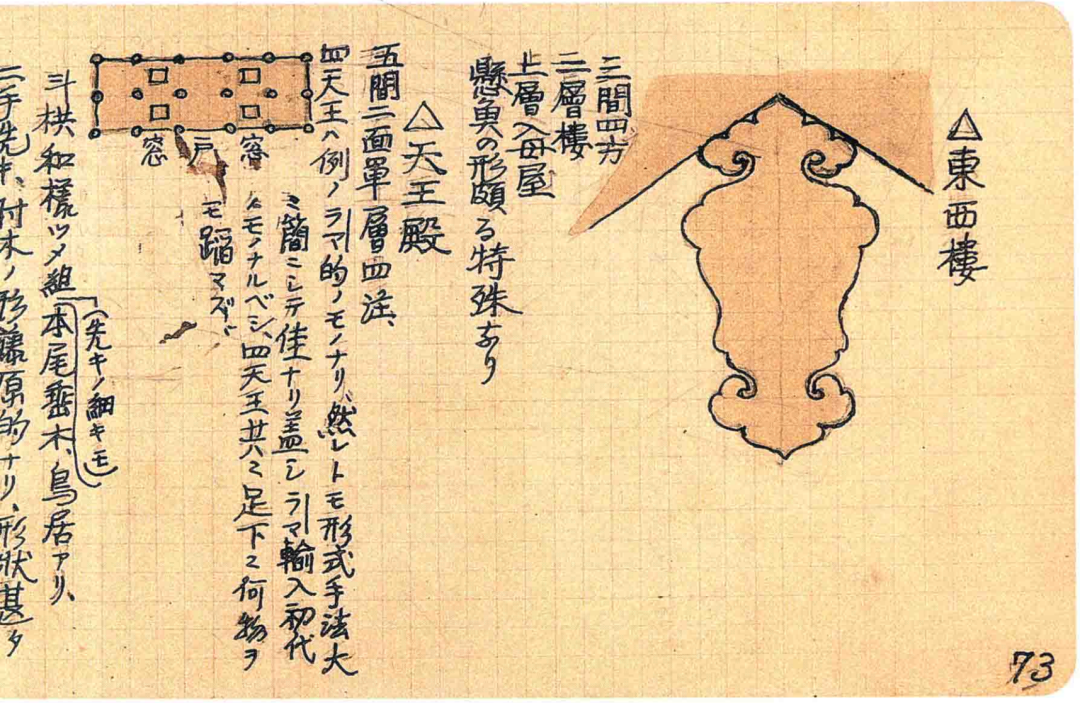 △東西樓
三間四方
二層樓
上層入母屋
懸魚の形頗る特殊なり
△天王殿
五間二面單層四注、
四天王ハ例ノラマ的ノモノナリ、然レトモ形式手法大
ニ簡ニシテ佳ナリ蓋シラマ輸入初代
ノモノナルベシ、四天王共ニ足下ニ何物ヲ
モ蹈マズ
窓
戸
窓
斗栱和樣ツメ組本尾垂木、鳥居アリ、
(先キノ細キモ)
二手先キ、肘木ノ形藤原的ナリ、形狀甚タ
73